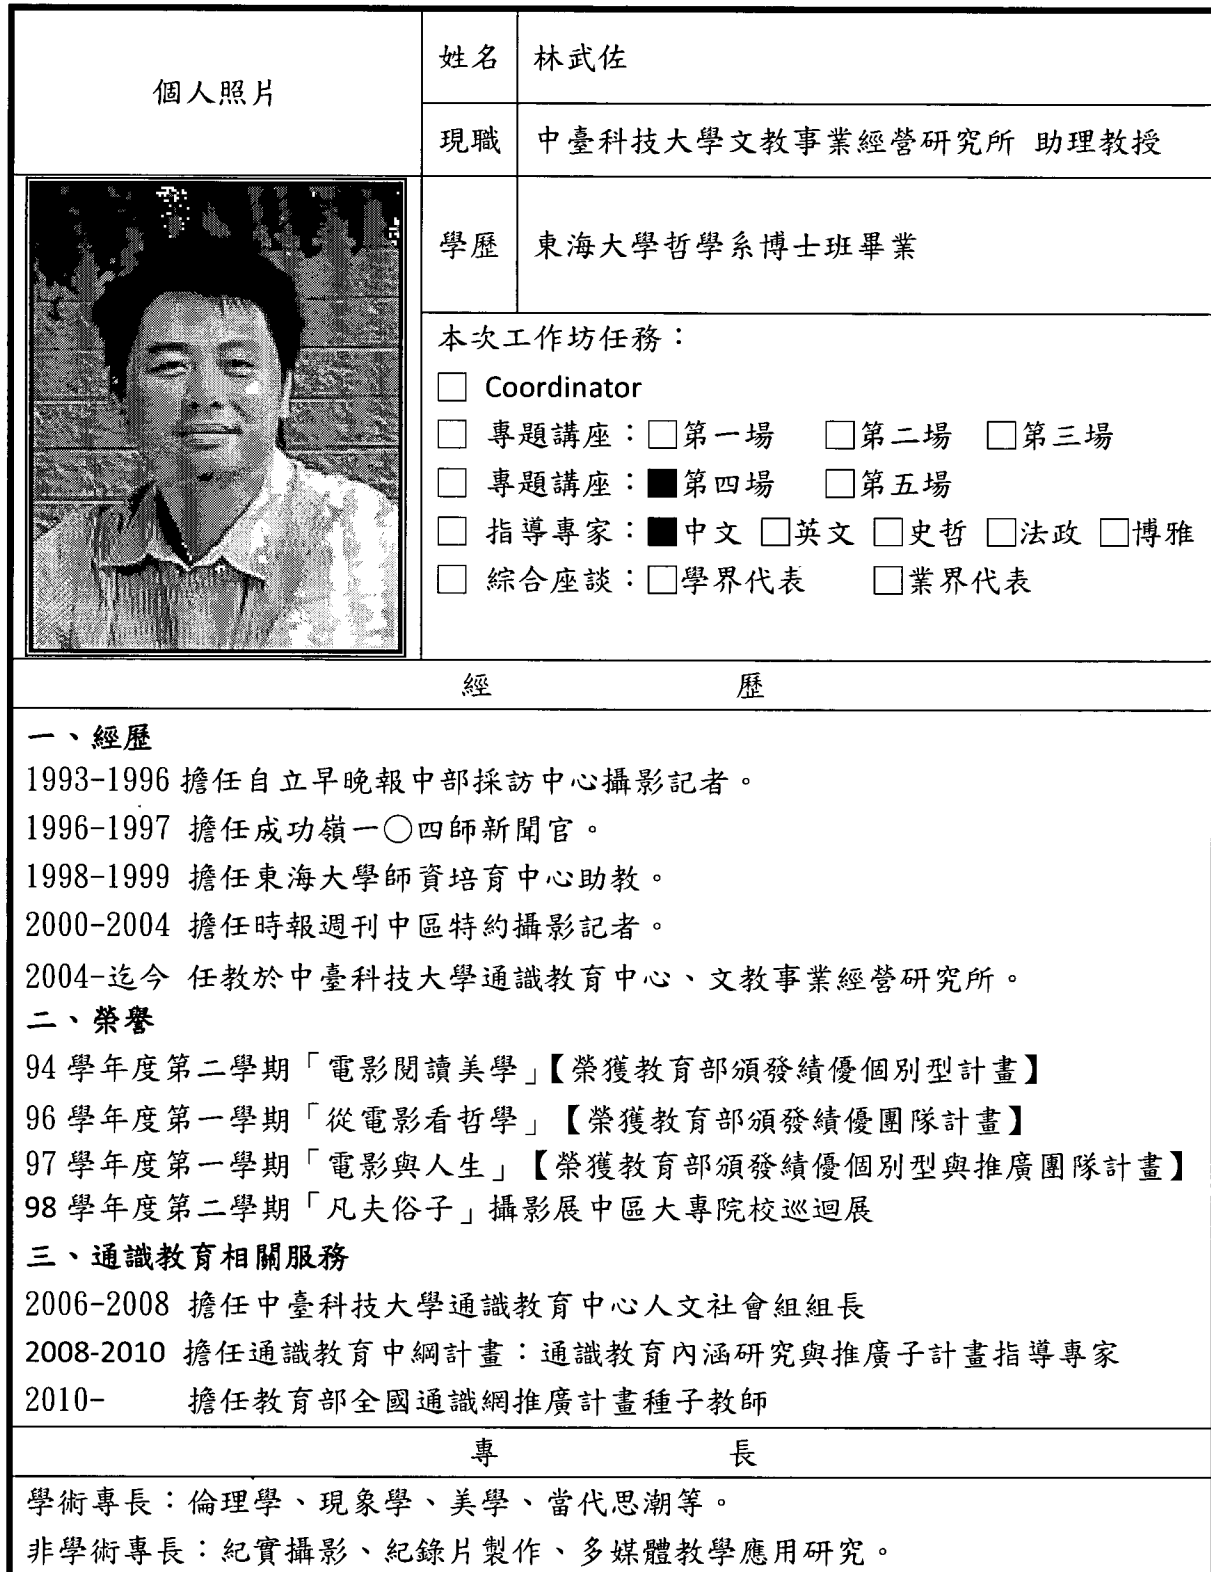 個人照片
姓名 林武佐
現職 中臺科技大學文教事業經營研究所 助理教授
學歷 東海大學哲學系博士班畢業
本次工作坊任務：
□ Coordinator
□ 專題講座：□第一場 □第二場 □第三場
□ 專題講座：■第四場 □第五場
□ 指導專家：■中文 □英文 □史哲 □法政 □博雅
□ 綜合座談：□學界代表 □業界代表
經 歷
一、經歷
1993-1996 擔任自立早晚報中部採訪中心攝影記者。
1996-1997 擔任成功嶺一○四師新聞官。
1998-1999 擔任東海大學師資培育中心助教。
2000-2004 擔任時報週刊中區特約攝影記者。
2004-迄今 任教於中臺科技大學通識教育中心、文教事業經營研究所。
二、榮譽
94 學年度第二學期「電影閱讀美學」【榮獲教育部頒發績優個別型計畫】
96 學年度第一學期「從電影看哲學」【榮獲教育部頒發績優團隊計畫】
97 學年度第一學期「電影與人生」【榮獲教育部頒發績優個別型與推廣團隊計畫】
98 學年度第二學期「凡夫俗子」攝影展中區大專院校巡迴展
三、通識教育相關服務
2006-2008 擔任中臺科技大學通識教育中心人文社會組組長
2008-2010 擔任通識教育中綱計畫：通識教育內涵研究與推廣子計畫指導專家
2010- 擔任教育部全國通識網推廣計畫種子教師
專 長
學術專長：倫理學、現象學、美學、當代思潮等。
非學術專長：紀實攝影、紀錄片製作、多媒體教學應用研究。